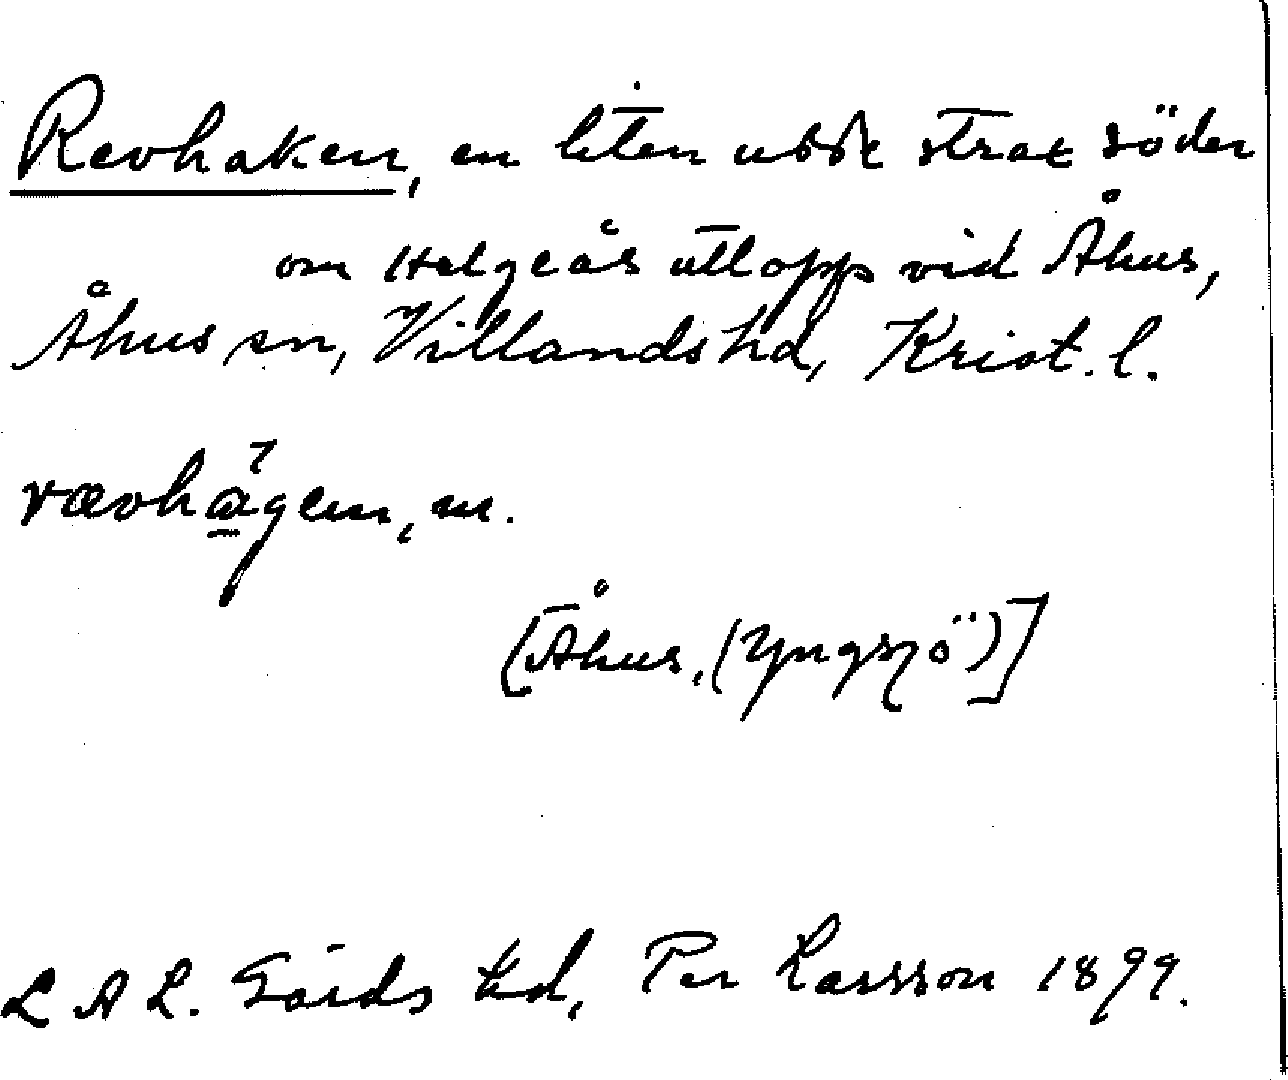 Revhaken, en liten udde strax söder
om Helgeås utlopp vid Åhus,
Åhus sn, Villands hd, Krist. l.
rævhagen, m.
[Åhus, (Yngsjö)]
L A L. Gärds hd, Per Larsson 1899.